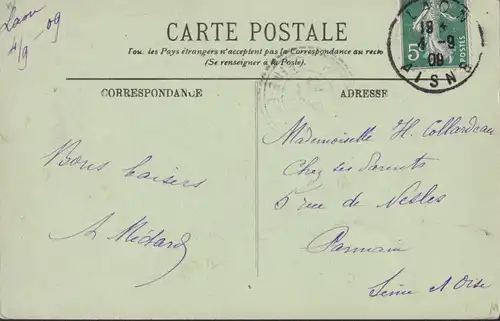 Laon
4/9 -09
CARTE POSTALE
Tou. les Pays étrangers n'acceptent pas la Correspondance au recto
(Se renseigner à la Poste).
CORRESPONDANCE
ADRESSE
LAON
19 *
4 - 9
09
AISNE
5c
POSTES
Bons baisers
Médard
Mademoiselle H. Collardeau
Chez ses Parents
5 rue de Nesles
Parmain
Seine et Oise